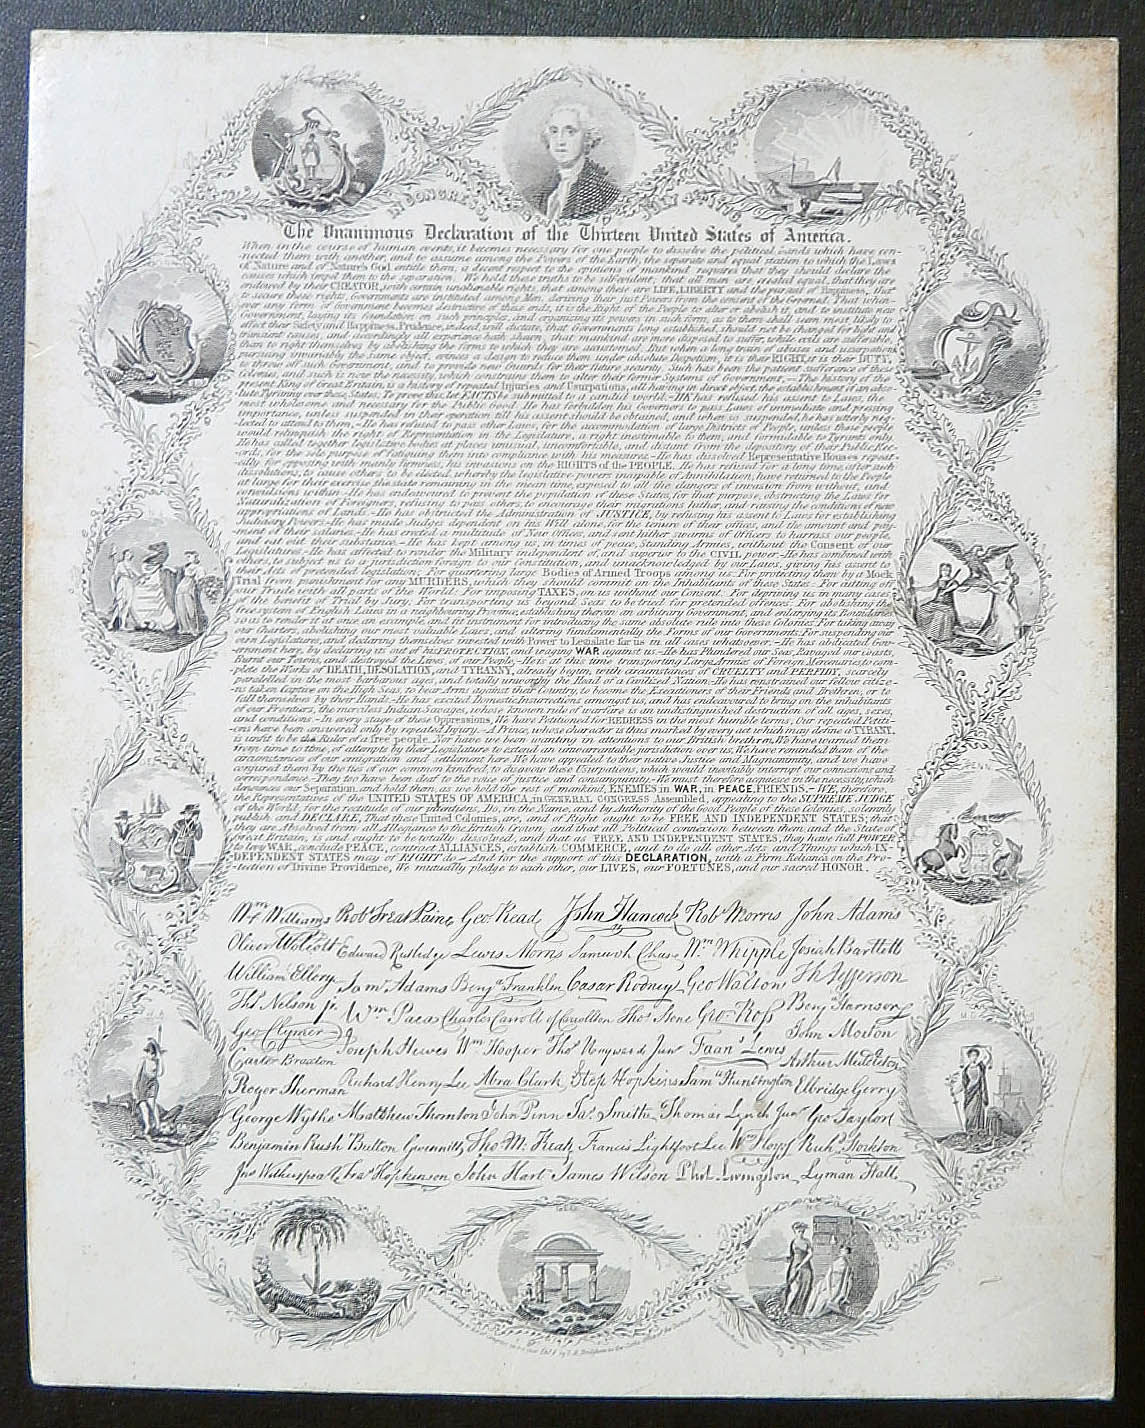 IN CONGRESS, JULY 4TH, 1776
The Unanimous Declaration of the Thirteen United States of America.
When in the course of human events, it becomes necessary for one people to dissolve the political bands which have con-
nected them with another, and to assume among the Powers of the Earth, the separate and equal station to which the Laws
of Nature and of Nature's God entitle them, a decent respect to the opinions of mankind requires that they should declare the
causes which impel them to the separation. We hold these truths to be self-evident; that all men are created equal, that they are
endowed by their CREATOR, with certain unalienable rights, that among these are LIFE, LIBERTY and the pursuit of Happiness, that
to secure these rights, Governments are instituted among Men, deriving their just Powers from the consent of the Governed. That when-
ever any form of Government becomes destructive of these ends, it is the Right of the People to alter or abolish it, and to institute new
Government, laying its foundation on such principles, and organizing its powers in such form, as to them shall seem most likely to
effect their Safety and Happiness. Prudence, indeed, will dictate, that Governments long established, should not be changed for light and
transient causes, and accordingly all experience hath shewn, that mankind are more disposed to suffer, while evils are sufferable,
than to right themselves by abolishing the forms to which they are accustomed. But when a long train of abuses and usurpations,
pursuing invariably the same object, evinces a design to reduce them under absolute Despotism, it is their RIGHT, it is their DUTY,
to throw off such Government, and to provide new Guards for their future security. Such has been the patient sufferance of these
Colonies, and such is now the necessity which constrains them to alter their former Systems of Government.—The history of the
present King of Great Britain, is a history of repeated Injuries and Usurpations, all having in direct object the establishment of an abso-
lute Tyranny over these States; To prove this, let FACTS be submitted to a candid world.—HE has refused his assent to Laws, the
most wholesome and necessary for the Public Good. He has forbidden his Governors to pass Laws of immediate and pressing
importance, unless suspended in their operation till his assent should be obtained, and when so suspended, he has utterly neg-
lected to attend to them.—He has refused to pass other Laws, for the accommodation of large Districts of People, unless those people
would relinquish the right of Representation in the Legislature, a right inestimable to them, and formidable to Tyrants only.
He has called together legislative bodies at places unusual, uncomfortable, and distant from the depository of their Public Rec-
ords, for the sole purpose of fatiguing them into compliance with his measures.—He has dissolved Representative Houses repeat-
edly, for opposing with manly firmness, his invasions on the RIGHTS of the PEOPLE. He has refused for a long time, after such
dissolutions, to cause others to be elected, whereby the Legislative powers incapable of Annihilation, have returned to the People
at large for their exercise, the state remaining in the mean time, exposed to all the dangers of invasion from without, and
convulsions within.—He has endeavoured to prevent the population of these States, for that purpose, obstructing the Laws for
Naturalization of Foreigners, refusing to pass others, to encourage their migrations hither, and raising the conditions of new
appropriations of Lands.—He has obstructed the Administration of JUSTICE, by refusing his assent to Laws for establishing
Judiciary Powers.—He has made Judges dependent on his Will alone, for the tenure of their offices, and the amount and pay-
ment of their salaries.—He has erected a multitude of New Offices, and sent hither swarms of Officers to harrass our people,
and eat out their substance.—He has kept among us, in times of peace, Standing Armies, without the Consent of our
Legislatures.—He has affected to render the Military independent of, and superior to the CIVIL power.—He has combined with
others, to subject us to a jurisdiction foreign to our Constitution, and unacknowledged by our Laws, giving his assent to
their Acts of pretended legislation; For quartering large Bodies of Armed Troops among us. For protecting them by a Mock
Trial from punishment for any MURDERS, which they should commit on the Inhabitants of these States. For cutting off
our Trade with all parts of the World: For imposing TAXES, on us without our Consent. For depriving us in many cases
of the benefit of Trial by Jury. For transporting us beyond Seas to be tried for pretended offences: For abolishing the
free system of English Laws in a Neighbouring Province, establishing therein an arbitrary Government, and enlarging its Boundaries
so as to render it at once an example, and fit instrument for introducing the same absolute rule into these Colonies. For taking away
our Charters, abolishing our most valuable Laws, and altering fundamentally the Forms of our Governments. For suspending our
own Legislatures, and declaring themselves invested with Power to Legislate for us in all cases whatsoever.—He has abdicated Gov-
ernment here, by declaring us out of his PROTECTION, and waging WAR against us.—He has Plundered our Seas, Ravaged our coasts,
Burnt our Towns, and destroyed the Lives, of our People.—He is at this time transporting Large Armies of Foreign Mercenaries, to com-
plete the Works of DEATH, DESOLATION, and TYRANNY, already begun, with circumstances of CRUELTY and PERFIDY, scarcely
paralelled in the most barbarous ages, and totally unworthy the Head of a Civilized Nation.—He has constrained our fellow citize-
ns taken Captive on the High Seas, to bear Arms against their Country, to become the Executioners of their Friends and Brethren, or to
fall themselves by their Hands.—He has excited Domestic Insurrections amongst us, and has endeavored to bring on the inhabitants
of our Frontiers, the merciless Indian Savages, whose known rule of warfare is an undistinguished destruction of all ages, sexes,
and conditions.—In every stage of these Oppressions, We have Petitioned for REDRESS in the most humble terms, Our repeated Petiti-
ons have been answered only by repeated Injury.—A Prince, whose character is thus marked by every act which may define a TYRANNY,
is unfit to be the Ruler of a free people. Nor have we been wanting in attentions to our British brethren, We have warned them
from time to time, of attempts by their Legislature to extend an unwarrantable jurisdiction over us, We have reminded them of the
circumstances of our emigration and settlement here. We have appealed to their native Justice and Magnanimity, and we have
conjured them by the ties of our common kindred, to disavow these Usurpations, which would inevitably interrupt our connexions and
correspondence.—They too have been deaf to the voice of justice and consanguinity.—We must therefore acquiesce in the necessity, which
denounces our Separation, and hold them, as we hold the rest of mankind, ENEMIES in WAR, in PEACE, FRIENDS.—WE, therefore,
the Representatives of the UNITED STATES OF AMERICA, in GENERAL CONGRESS Assembled, appealing to the SUPREME JUDGE
of the World, for the rectitude of our intentions, Do, in the Name, and by Authority of the good People of these Colonies, solemnly
publish and DECLARE, That these United Colonies, are, and of Right ought to be FREE AND INDEPENDENT STATES; that
they are Absolved from all Allegiance to the British Crown, and that all Political connexion between them and the State of
Great Britain, is and ought to be totally dissolved, and that as FREE AND INDEPENDENT STATES, they have full POWER
to levy WAR, conclude PEACE, contract ALLIANCES, establish COMMERCE, and to do all other Acts and Things which IN-
DEPENDENT STATES may of RIGHT do.—And for the support of this DECLARATION, with a Firm Reliance on the Pro-
tection of Divine Providence, We mutually pledge to each other, our LIVES, our FORTUNES, and our sacred HONOR.
Wm Williams Robt Treat Paine Geo. Read John Hancock Robt Morris John Adams
Oliver Wolcott Edward Rutledge Lewis Morris Samuel Chase Wm Whipple Josiah Bartlett
William Ellery Saml Adams Benja Franklin Cæsar Rodney Geo Walton Th Jefferson
Thos Nelson jr. Wm Paca Charles Carroll of Carrollton Thos Stone Geo. Ross Benj Harrison
Geo Clymer Joseph Hewes Wm Hooper Thos Heyward Junr Frans Lewis John Morton
Carter Braxton Arthur Middleton
Roger Sherman Richard Henry Lee Abra Clark Step Hopkins Saml Huntington Elbridge Gerry
George Wythe Matthew Thornton John Penn Jas Smith Thomas Lynch Junr Geo Taylor
Benjamin Rush Button Gwinnett Tho M. Kean Francis Lightfoot Lee Wm Floyd Richd Stockton
Jno Witherspoon Fras Hopkinson John Hart James Wilson Phil. Livingston Lyman Hall